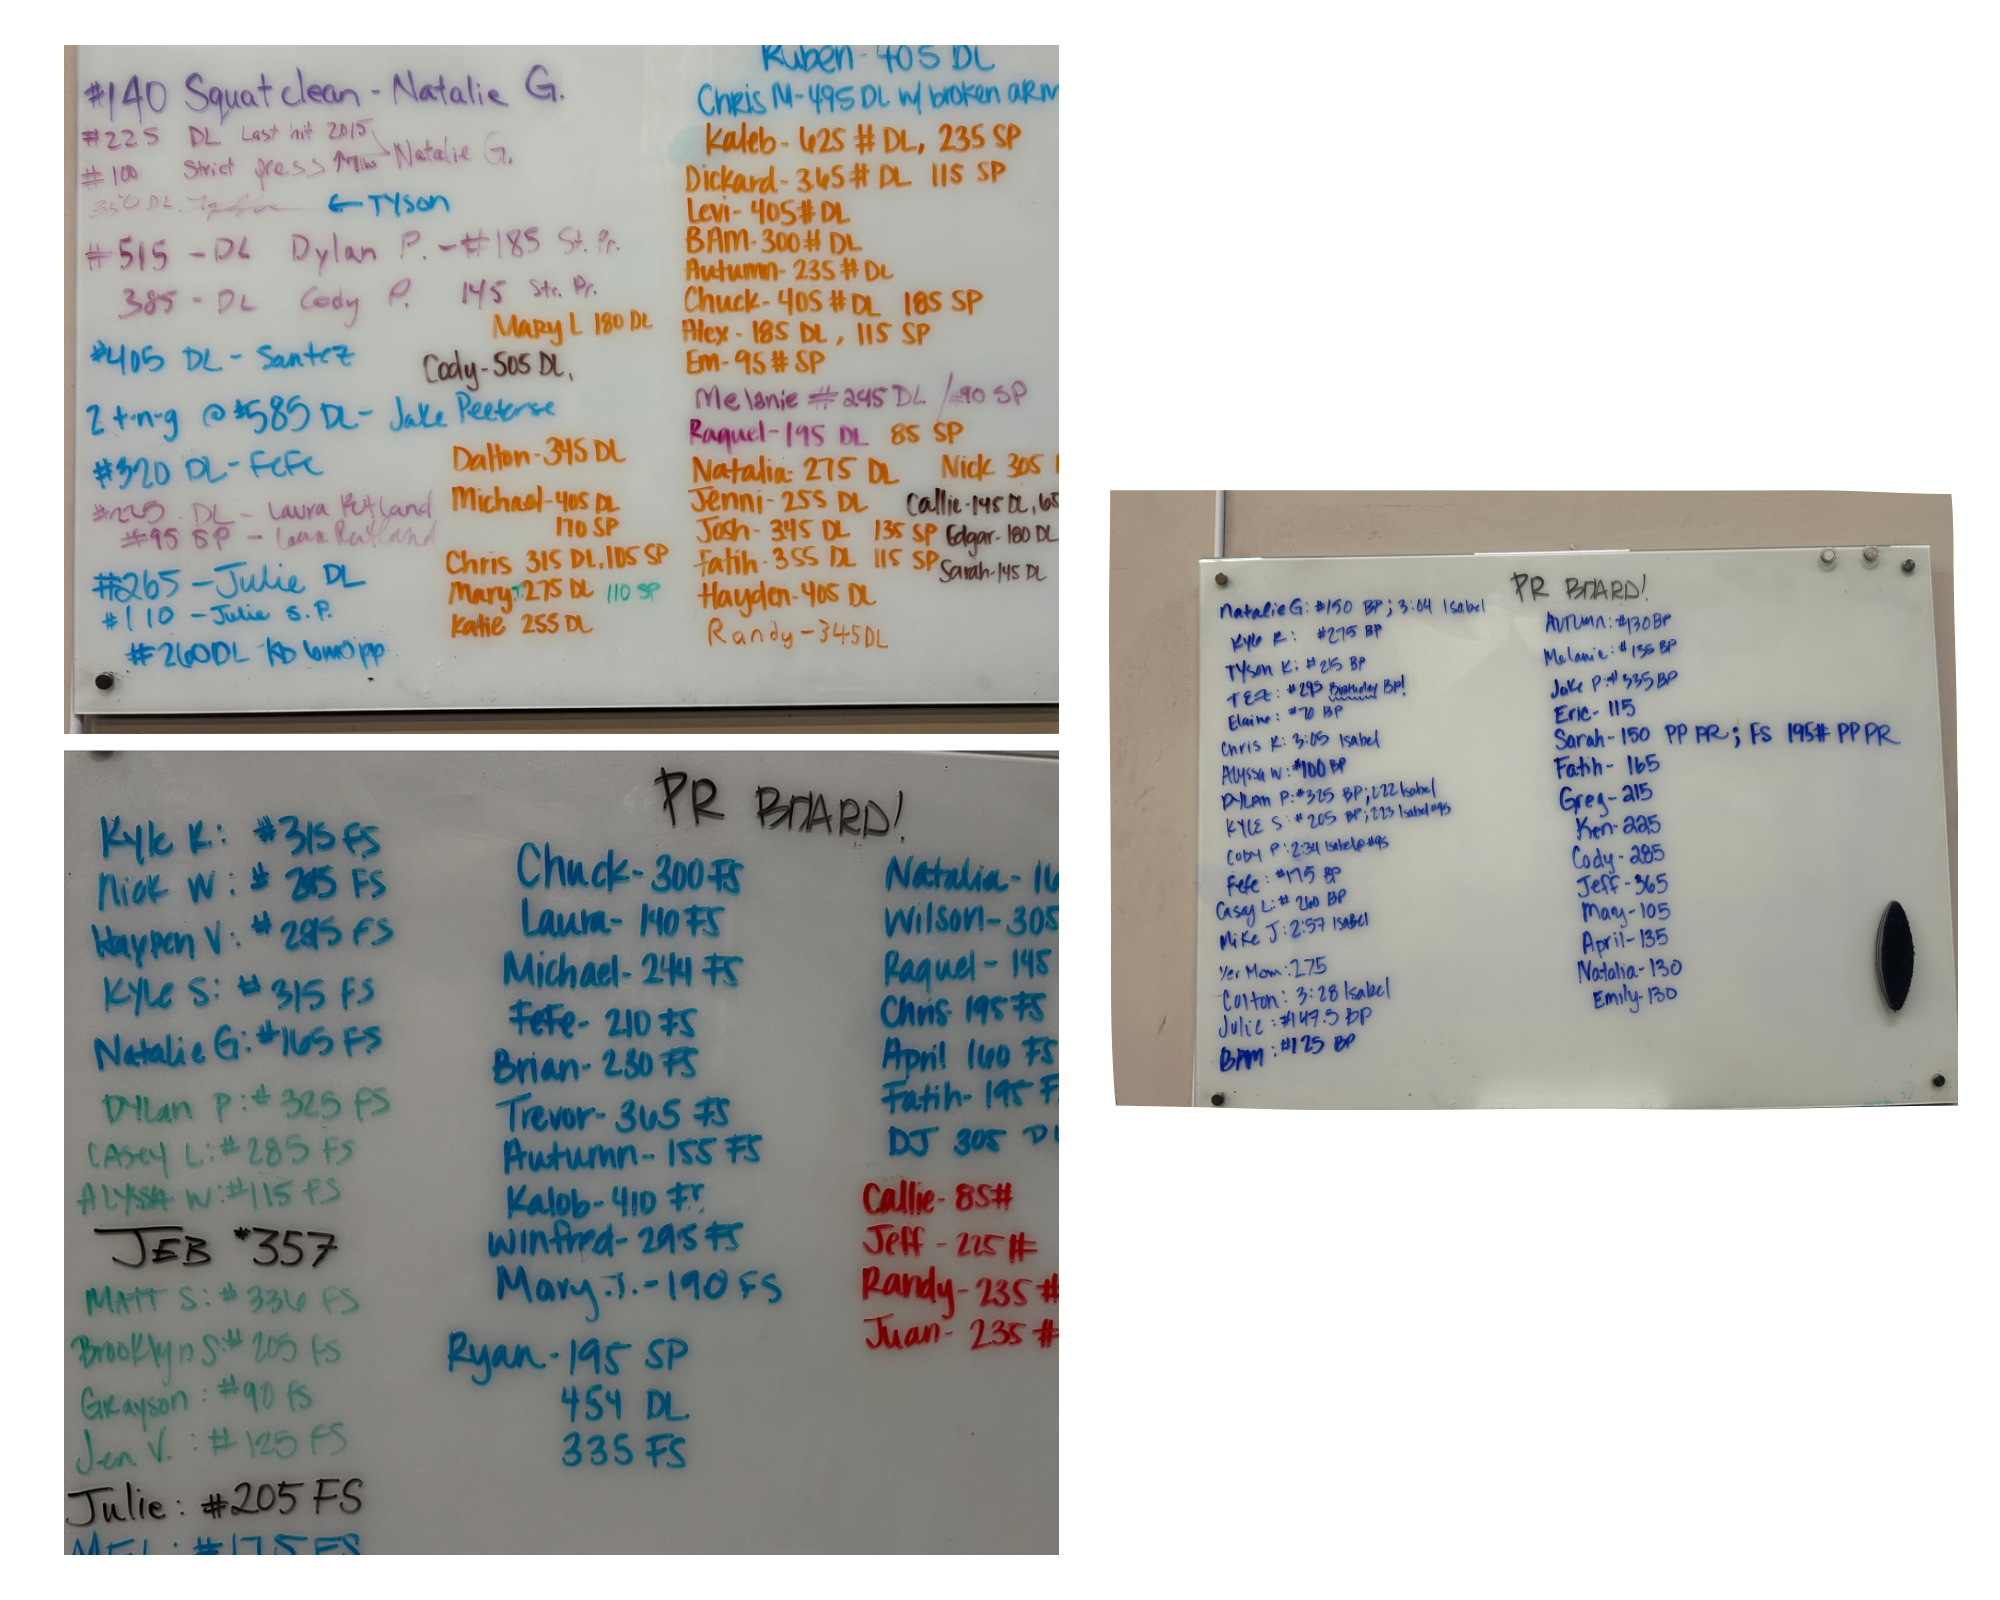 #140 Squat clean - Natalie G.
#225 DL Last hit 2015
#100 Strict press Natalie G.
350 DL ← TYson
#515 - DL Dylan P. - #185 St. Pr.
385 - DL Cody P. 145 Str. Pr.
Mary L 180 DL
#405 DL - Santez
Cody - 505 DL,
2 t-n-g @ #585 DL - Jake Peeterse
#320 DL - FeFe
Dalton - 345 DL
DL - Laura Rutland
#95 SP - Laura Rutland
Michael - 405 DL
170 SP
#265 - Julie DL
#110 - Julie S.P.
#260DL - KD
Chris 315 DL, 105 SP
Mary J. 275 DL 110 SP
Katie 255 DL
Ruben - 405 DL
Chris M - 495 DL w/ broken arm
Kaleb - 625 # DL, 235 SP
Dickard - 365# DL 115 SP
Levi - 405# DL
BAM - 300# DL
Autumn - 235 # DL
Chuck - 405 # DL 185 SP
Alex - 185 DL, 115 SP
Em - 95# SP
Melanie #245 DL / #90 SP
Raquel - 195 DL 85 SP
Natalia: 275 DL Nick 305
Jenni - 255 DL Callie - 145 DL, 65
Josh - 345 DL 135 SP Edgar - 180 DL
Fatih - 355 DL 115 SP Sarah - 145 DL
Hayden - 405 DL
Randy - 345 DL
PR BOARD!
Kyle K: #315 FS
Nick W: # FS
Hayden V: # FS
Kyle S: #315 FS
Natalie G: #165 FS
Dylan P: # 325 FS
Casey L: # 285 FS
Alyssa W: #115 FS
JEB #357
MATT S: # 336 FS
Brooklyn S: # 205 FS
Grayson: #90 FS
Jen V. : # 125 FS
Julie: #205 FS
MEL: #175 FS
Chuck - 300 FS
Laura - 140 FS
Michael - 244 FS
FeFe - 210 FS
Brian - 230 FS
Trevor - 365 FS
Autumn - 155 FS
Kalob - 410 FS
Winfred - 295 FS
Mary J. - 190 FS
Ryan - 195 SP
454 DL
335 FS
Natalia - 16
Wilson - 305
Raquel - 145
Chris - 195 FS
April 160 FS
Fatih - 195 F
DJ 305 DL
Callie - 85#
Jeff - 225 #
Randy - 235 #
Juan - 235 #
PR BOARD!
Natalie G: #150 BP; 3:04 Isabel
Kyle K: #275 BP
Tyson K: #215 BP
TEZ: #295 Birthday BP!
Elaine: #70 BP
Chris K: 3:05 Isabel
Alyssa W: #100 BP
Dylan P: #325 BP; 2:22 Isabel
Kyle S: #205 BP; 2:23 Isabel #95
Coby P: 2:34 Isabel@#95
Fefe: #175 BP
Casey L: # 260 BP
Mike J: 2:57 Isabel
Yer Mom: 275
Colton: 3:28 Isabel
Julie: #147.5 BP
BAM: #125 BP
Autumn: #130 BP
Melanie: #135 BP
Jake P: # 335 BP
Eric - 115
Sarah - 150 PP PR; FS 195# PP PR
Fatih - 165
Greg - 215
Ken - 225
Cody - 285
Jeff - 365
Mary - 105
April - 135
Natalia - 130
Emily - 130